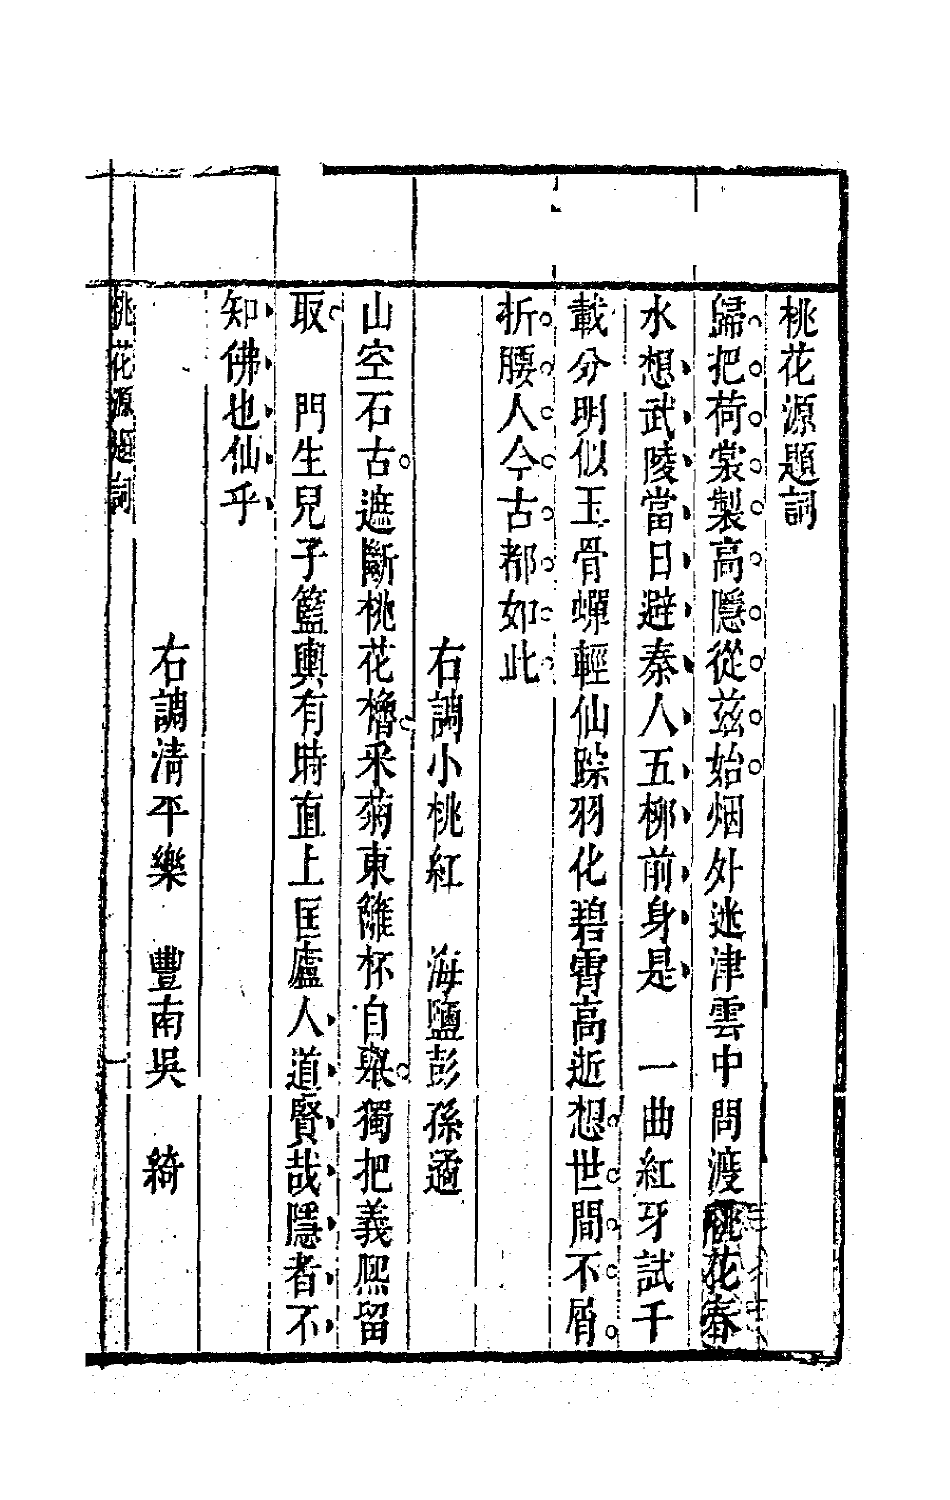 桃花源題詞
歸把荷裳製高隱從茲始烟外迷津雲中問渡桃花春
水想武陵當日避秦人五柳前身是　一曲紅牙試千
載分明似玉骨蟬輕仙踪羽化碧霄高逝想世間不屑
折腰人今古都如此
右調小桃紅　海鹽彭孫遹
山空石古遮斷桃花櫓采菊東籬杯自舉獨把義熙留
取　門生兒子籃輿有時直上匡廬人道賢哉隱者不
知佛也仙乎
右調清平樂　豐南吳　綺
桃花源題詞　一